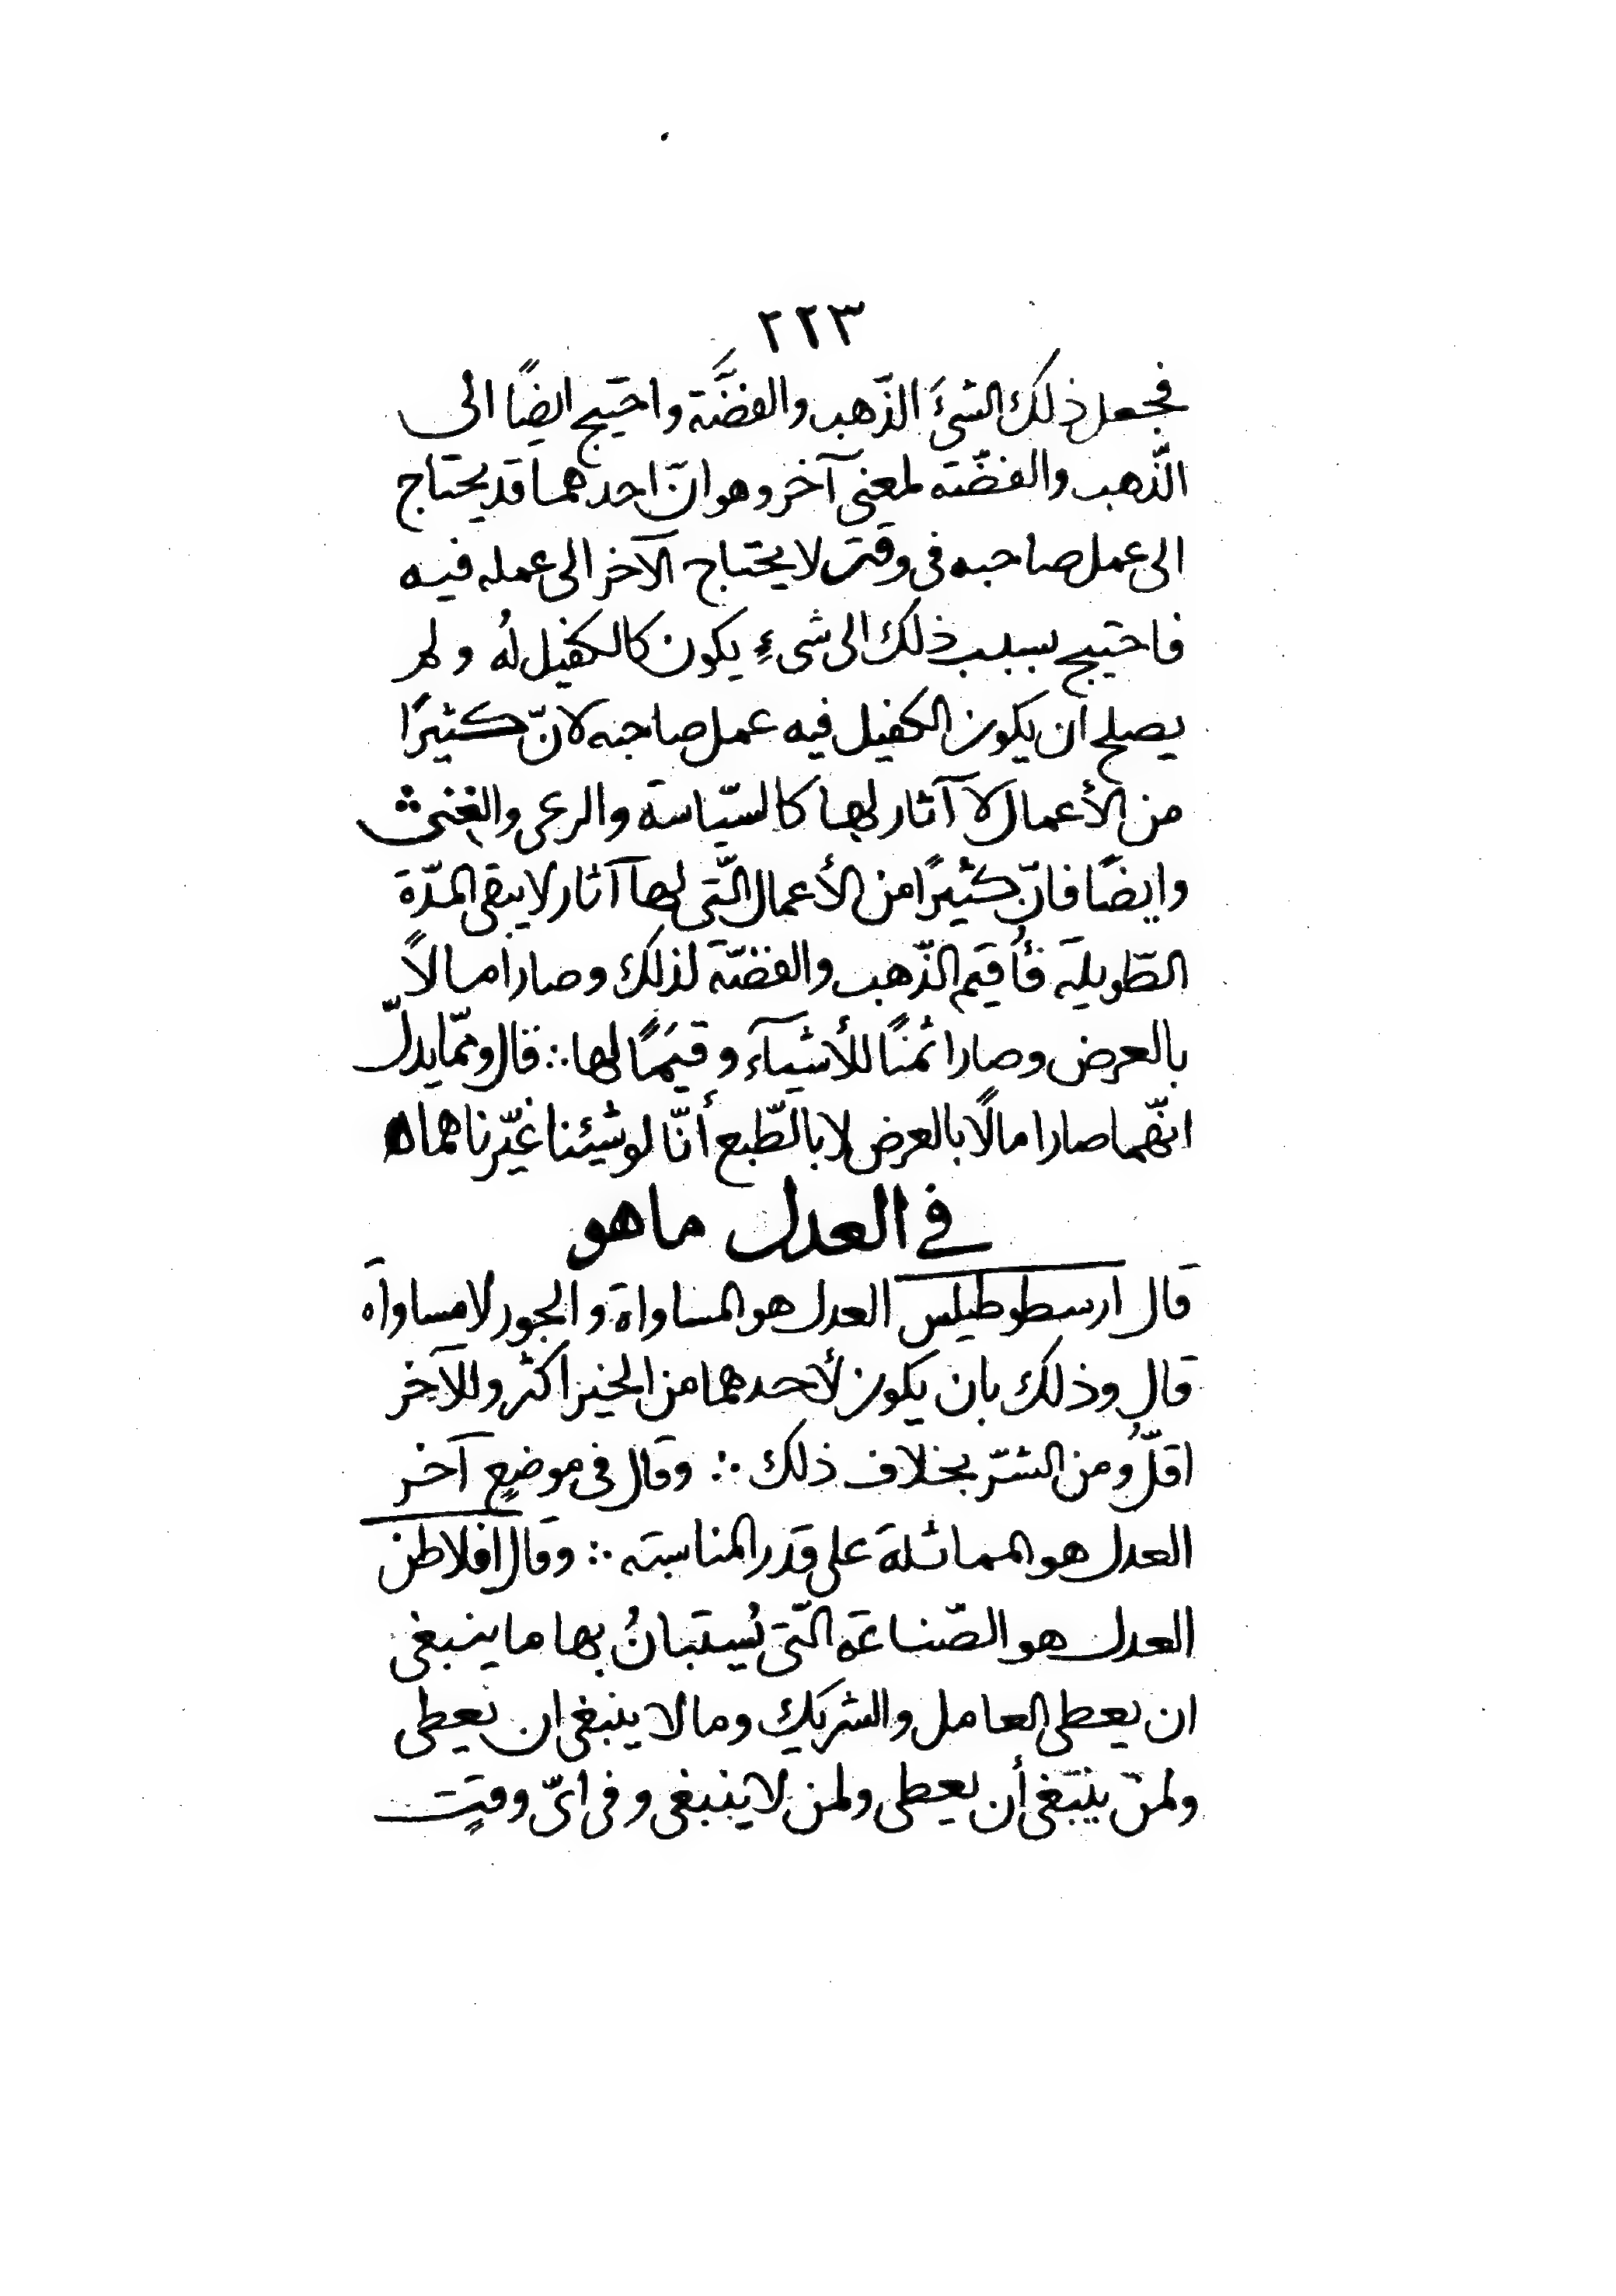 ٢٢٣
فجعل ذلك الشئَ الذّهب والفضَّة واحتيج ايضًا الى
الذّهب والفضّة لمعنى آخر وهو انّ احدهما قد يحتاج
الى عمل صاحبه فى وقت لا يحتاج الآخر الى عمله فيه
فاحتيج بسبب ذلك الى شىءٍ يكون كالكفيل لهُ ولم
يصلح ان يكون الكفيل فيه عمل صاحبه لانّ كثيرًا
من الأعمال لا آثار لها كالسّياسة والرعى
وايضًا فانّ كثيرًا من الأعمال الّتى لها آثار لا يبقى المدّة
الطّويلة فأُقيم الذّهب والفضّة لذلك وصارا مالاً
بالعرض وصارا ثمنًا للأشيآء وقيَمًا لها ∴ قال وممّا يدلّ
انّهما صارا مالًا بالعرض لا بالطّبع أنّا لو شيئنا غيّرناهما ه
فى العدل ما هو
قال ارسطوطيلس العدل هو المساواة والجور لا مساواة
قال وذلك بان يكون لأحدهما من الخير اكثر وللآخر
اقلُّ ومن الشّر بخلاف ذلك ∴ وقال فى موضعٍ آخر
العدل هو المماثلة على قدر المناسبة ∴ وقال افلاطن
العدل هو الصّناعة الّتى يُستبانُ بها ما ينبغى
ان يعطى العامل والشريك وما لا ينبغى ان يعطى
ولمن ينبغى أن يعطى ولمن لا ينبغى وفى اىّ وقتٍ